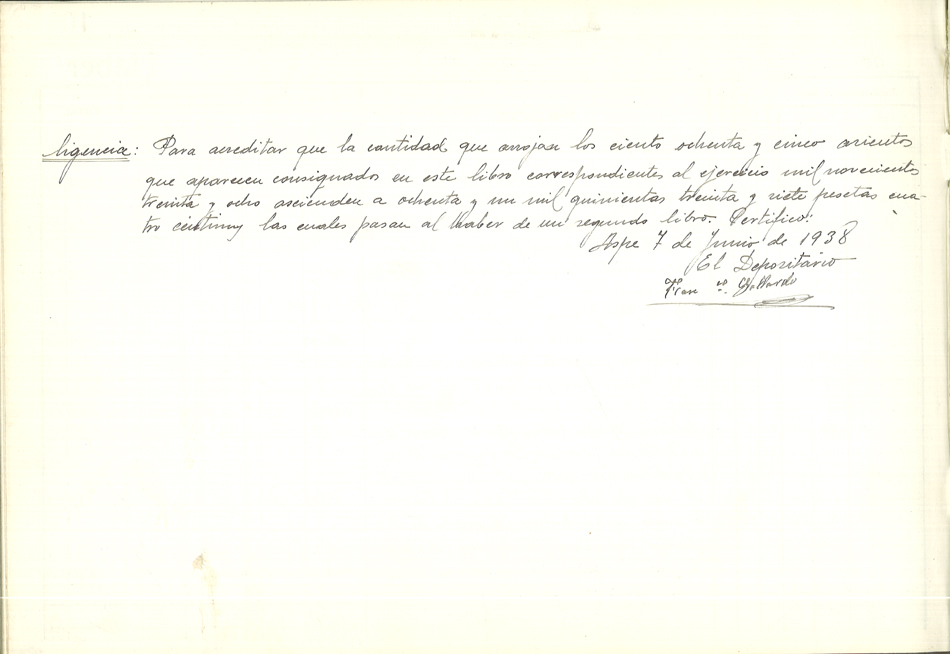 ligencia: Para acreditar que la cantidad que arrojan los ciento ochenta y cinco asientos
que aparecen consignados en este libro correspondientes al ejercicio mil novecientos
treinta y ocho ascienden a ochenta y un mil quinientas treinta y siete pesetas cua-
tro céntimos las cuales pasan al Haber de un segundo libro. Certifico:
Aspe 7 de Junio de 1938
El Depositario
Fran Gallardo